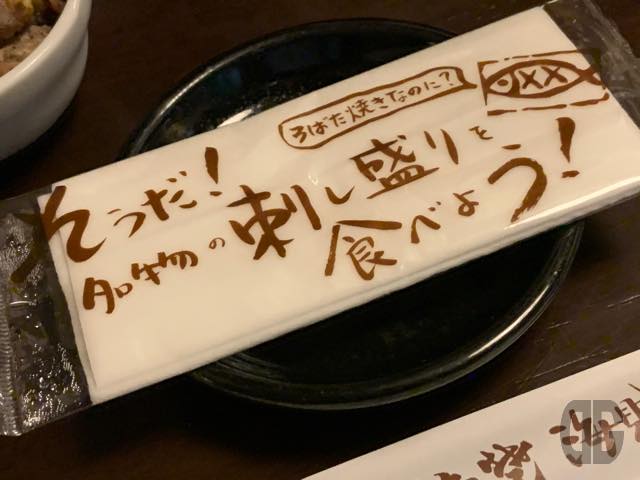 ろばた焼きなのに？
そうだ！
名物の刺し盛りを
食べよう！